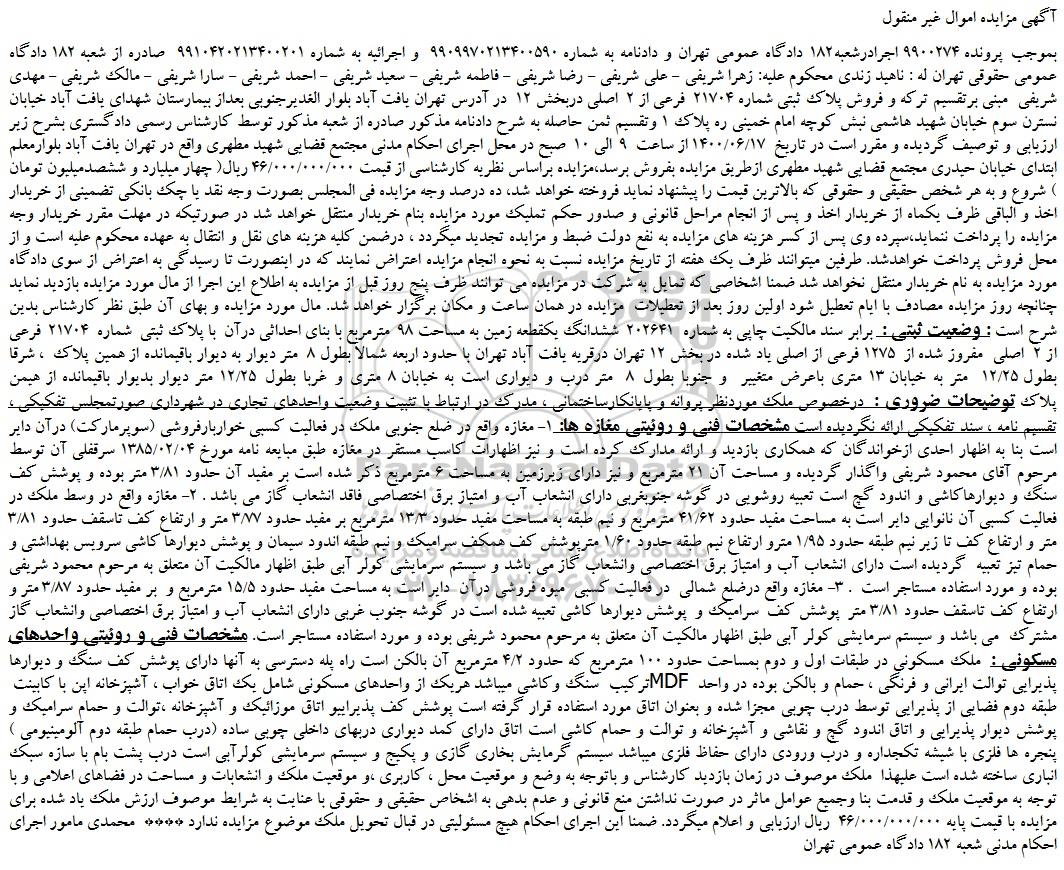 آگهی مزایده اموال غیر منقول
بموجب پرونده ۹۹۰۰۲۷۴ اجرادرشعبه۱۸۲ دادگاه عمومی تهران و دادنامه به شماره ۹۹۰۹۹۷۰۲۱۳۴۰۰۵۹۰ و اجرائیه به شماره ۹۹۱۰۴۲۰۲۱۳۴۰۰۲۰۱ صادره از شعبه ۱۸۲ دادگاه
عمومی حقوقی تهران له : ناهید زندی محکوم علیه: زهرا شریفی – علی شریفی – رضا شریفی – فاطمه شریفی – سعید شریفی – احمد شریفی – سارا شریفی – مالک شریفی – مهدی
شریفی مبنی برتقسیم ترکه و فروش پلاک ثبتی شماره ۲۱۷۰۴ فرعی از ۲ اصلی دربخش ۱۲ در آدرس تهران یافت آباد بلوار الغدیرجنوبی بعداز بیمارستان شهدای یافت آباد خیابان
نسترن سوم خیابان شهید هاشمی نبش کوچه امام خمینی ره پلاک ۱ وتقسیم ثمن حاصله به شرح دادنامه مذکور صادره از شعبه مذکور توسط کارشناس رسمی دادگستری بشرح زیر
ارزیابی و توصیف گردیده و مقرر است در تاریخ ۱۴۰۰/۰۶/۱۷ از ساعت ۹ الی ۱۰ صبح در محل اجرای احکام مدنی مجتمع قضایی شهید مطهری واقع در تهران یافت آباد بلوارمعلم
ابتدای خیابان حیدری مجتمع قضایی شهید مطهری ازطریق مزایده بفروش برسد،مزایده براساس نظریه کارشناسی از قیمت ۴۶/۰۰۰/۰۰۰/۰۰۰ ریال( چهار میلیارد و ششصدمیلیون تومان
) شروع و به هر شخص حقیقی و حقوقی که بالاترین قیمت را پیشنهاد نماید فروخته خواهد شد، ده درصد وجه مزایده فی المجلس بصورت وجه نقد یا چک بانکی تضمینی از خریدار
اخذ و الباقی ظرف یکماه از خریدار اخذ و پس از انجام مراحل قانونی و صدور حکم تملیک مورد مزایده بنام خریدار منتقل خواهد شد در صورتیکه در مهلت مقرر خریدار وجه
مزایده را پرداخت ننماید،سپرده وی پس از کسر هزینه های مزایده به نفع دولت ضبط و مزایده تجدید میگردد ، درضمن کلیه هزینه های نقل و انتقال به عهده محکوم علیه است و از
محل فروش پرداخت خواهدشد. طرفین میتوانند ظرف یک هفته از تاریخ مزایده نسبت به نحوه انجام مزایده اعتراض نمایند که در اینصورت تا رسیدگی به اعتراض از سوی دادگاه
مورد مزایده به نام خریدار منتقل نخواهد شد ضمنا اشخاصی که تمایل به شرکت در مزایده می توانند ظرف پنج روز قبل از مزایده به اطلاع این اجرا از مال مورد مزایده بازدید نماید
چنانچه روز مزایده مصادف با ایام تعطیل شود اولین روز بعد از تعطیلات مزایده در همان ساعت و مکان برگزار خواهد شد. مال مورد مزایده و بهای آن طبق نظر کارشناس بدین
شرح است : وضعیت ثبتی : برابر سند مالکیت چاپی به شماره ۲۰۲۶۴۱ ششدانگ یکقطعه زمین به مساحت ۹۸ مترمربع با بنای احداثی درآن با پلاک ثبتی شماره ۲۱۷۰۴ فرعی
از ۲ اصلی مفروز شده از ۱۲۷۵ فرعی از اصلی یاد شده در بخش ۱۲ تهران درقریه یافت آباد تهران با حدود اربعه شمالا بطول ۸ متر دیوار به دیوار باقیمانده از همین پلاک ، شرقا
بطول ۱۲/۲۵ متر به خیابان ۱۳ متری باعرض متغییر و جنوبا بطول ۸ متر درب و دیواری است به خیابان ۸ متری و غربا بطول ۱۲/۲۵ متر دیوار بدیوار باقیمانده از هیمن
پلاک توضیحات ضروری : درخصوص ملک موردنظر پروانه و پایانکارساختمانی ، مدرک در ارتباط با تثبیت وضعیت واحدهای تجاری در شهرداری صورتمجلس تفکیکی ،
تقسیم نامه ، سند تفکیکی ارائه نگردیده است مشخصات فنی و روئیتی مغازه ها: ۱- مغازه واقع در ضلع جنوبی ملک در فعالیت کسبی خواربارفروشی (سوپرمارکت) درآن دایر
است بنا به اظهار احدی ازخواندگان که همکاری بازدید و ارائه مدارک کرده است و نیز اظهارات کاسب مستقر در مغازه طبق مبایعه نامه مورخ ۱۳۸۵/۰۲/۰۴ سرقفلی آن توسط
مرحوم آقای محمود شریفی واگذار گردیده و مساحت آن ۲۱ مترمربع و نیز دارای زیرزمین به مساحت ۶ مترمربع ذکر شده است بر مفید آن حدود ۳/۸۱ متر بوده و پوشش کف
سنگ و دیوارهاکاشی و اندود گچ است تعبیه روشویی در گوشه جنوبغربی دارای انشعاب آب و امتیاز برق اختصاصی فاقد انشعاب گاز می باشد . ۲- مغازه واقع در وسط ملک در
فعالیت کسبی آن نانوایی دایر است به مساحت مفید حدود ۴۱/۶۲ مترمربع و نیم طبقه به مساحت مفید حدود ۱۳/۳ مترمربع بر مفید حدود ۳/۷۷ متر و ارتفاع کف تاسقف حدود ۳/۸۱
متر و ارتفاع کف تا زیر نیم طبقه حدود ۱/۹۵ مترو ارتفاع نیم طبقه حدود ۱/۶۰ مترپوشش کف همکف سرامیک و نیم طبقه اندود سیمان و پوشش دیوارها کاشی سرویس بهداشتی و
حمام نیز تعبیه گردیده است دارای انشعاب آب و امتیاز برق اختصاصی وانشعاب گاز می باشد و سیستم سرمایشی کولر آبی طبق اظهار مالکیت آن متعلق به مرحوم محمود شریفی
بوده و مورد استفاده مستاجر است . ۳- مغازه واقع درضلع شمالی در فعالیت کسبی میوه فروشی درآن دایر است به مساحت مفید حدود ۱۵/۵ مترمربع و بر مفید حدود ۳/۸۷ متر و
ارتفاع کف تاسقف حدود ۳/۸۱ متر پوشش کف سرامیک و پوشش دیوارها کاشی تعبیه شده است در گوشه جنوب غربی دارای انشعاب آب و امتیاز برق اختصاصی وانشعاب گاز
مشترک می باشد و سیستم سرمایشی کولر آبی طبق اظهار مالکیت آن متعلق به مرحوم محمود شریفی بوده و مورد استفاده مستاجر است. مشخصات فنی و روئیتی واحدهای
مسکونی : ملک مسکونی در طبقات اول و دوم بمساحت حدود ۱۰۰ مترمربع که حدود ۴/۲ مترمربع آن بالکن است راه پله دسترسی به آنها دارای پوشش کف سنگ و دیوارها
ترکیب سنگ وکاشی میباشد هریک از واحدهای مسکونی شامل یک اتاق خواب ، آشپزخانه اپن با کابینت MDF پذیرایی توالت ایرانی و فرنگی ، حمام و بالکن بوده در واحد
طبقه دوم فضایی از پذیرایی توسط درب چوبی مجزا شده و بعنوان اتاق مورد استفاده قرار گرفته است پوشش کف پذیراییو اتاق موزائیک و آشپزخانه ،توالت و حمام سرامیک و
پوشش دیوار پذیرایی و اتاق اندود گچ و نقاشی و آشپزخانه و توالت و حمام کاشی است اتاق دارای کمد دیواری دربهای داخلی چوبی ساده (درب حمام طبقه دوم آلومینیومی )
پنجره ها فلزی با شیشه تکجداره و درب ورودی دارای حفاظ فلزی میباشد سیستم گرمایش بخاری گازی و پکیج و سیستم سرمایشی کولرآبی است درب پشت بام با سازه سبک
انباری ساخته شده است علیهذا ملک موصوف در زمان بازدید کارشناس و باتوجه به وضع و موقعیت محل ، کاربری ،و موقعیت ملک و انشعابات و مساحت در فضاهای اعلامی و با
توجه به موقعیت ملک و قدمت بنا وجمیع عوامل ماثر در صورت نداشتن منع قانونی و عدم بدهی به اشخاص حقیقی و حقوقی با عنایت به شرایط موصوف ارزش ملک یاد شده برای
مزایده با قیمت پایه ۴۶/۰۰۰/۰۰۰/۰۰۰ ریال ارزیابی و اعلام میگردد. ضمنا این اجرای احکام هیچ مسئولیتی در قبال تحویل ملک موضوع مزایده ندارد **** محمدی مامور اجرای
احکام مدنی شعبه ۱۸۲ دادگاه عمومی تهران
ParsNamadData
پایگاه اطلاع رسانی مناقصه و مزایده
۰۲۱-۸۸۳۴۹۶۷۰-۵